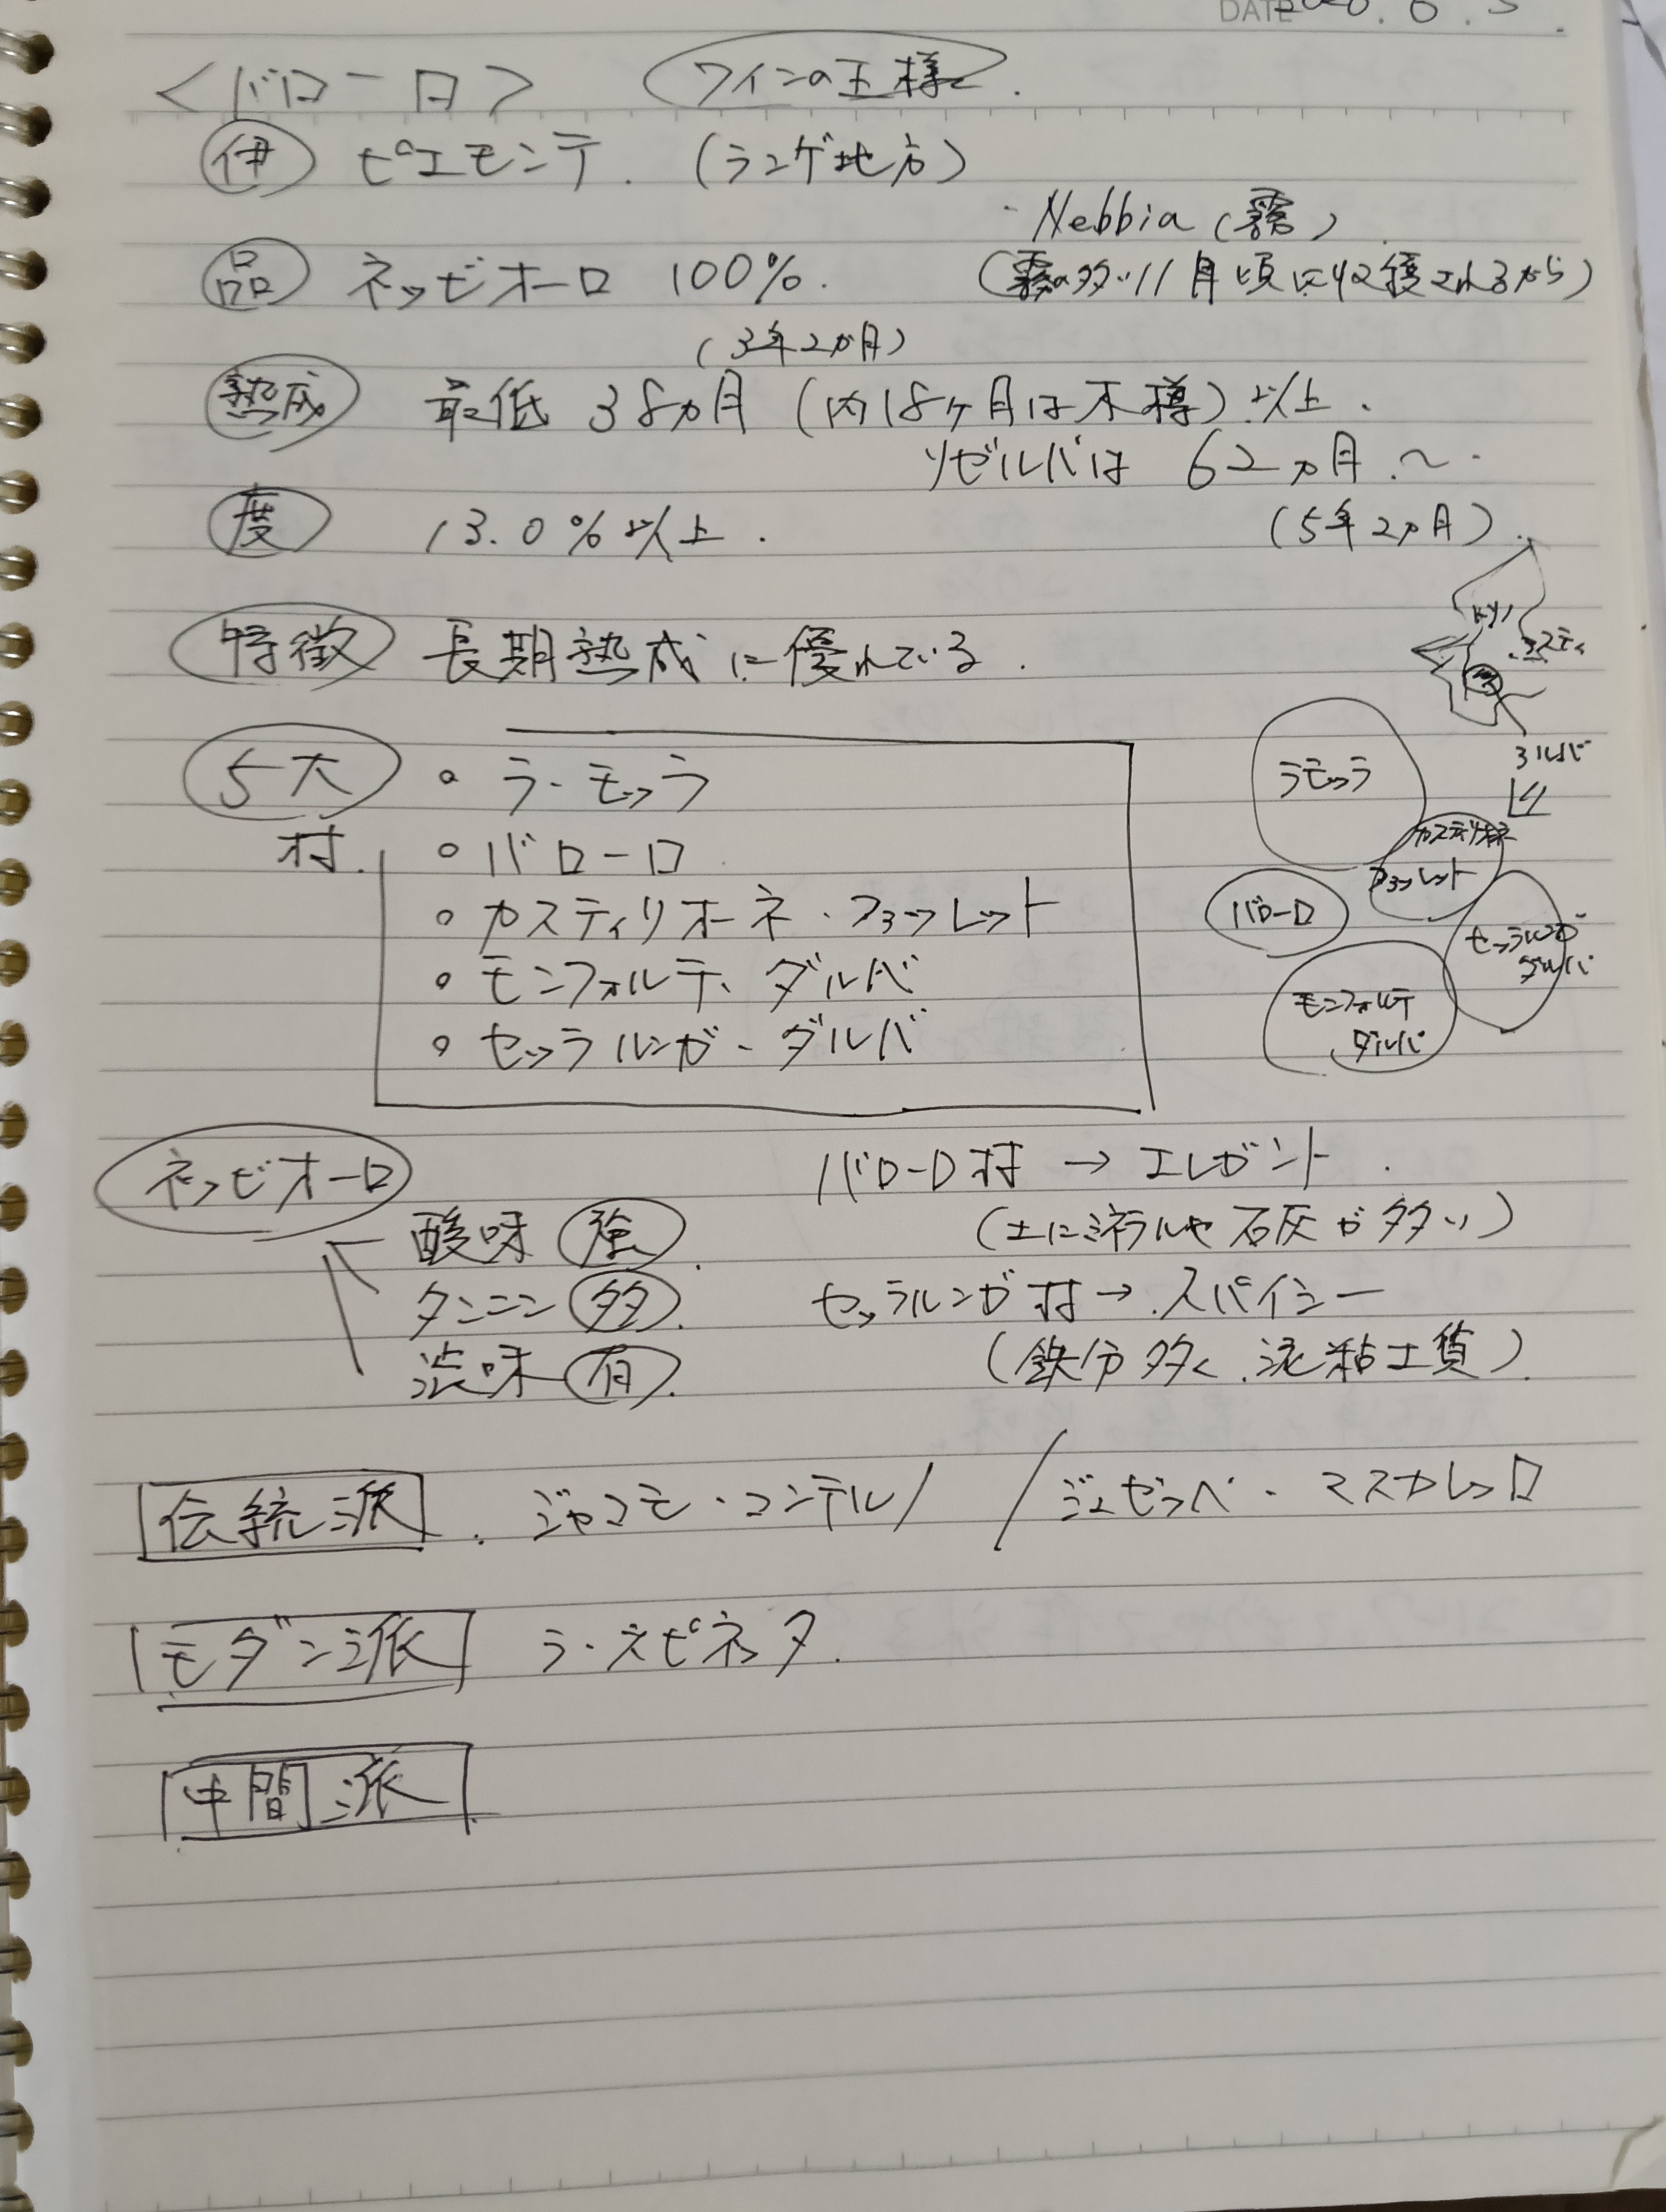 DATE
<バローロ> ワインの王様.
伊 ピエモンテ. (ランゲ地方)
・Nebbia (霧)
品 ネッビオーロ 100%. (霧の多い11月頃に収穫されるから)
(3年2か月)
熟成 最低 38ヵ月 (内18ヶ月は木樽) 以上.
リゼルバは 62ヵ月.〜.
(5年2ヵ月).
度 13.0%以上.
特徴 長期熟成に優れている.
トリノ
アスティ
アルバ
5大村.
○ ラ・モッラ
○ バローロ
○ カスティリオーネ・ファッレット
○ モンフォルテ・ダルバ
○ セッラルンガ・ダルバ
ラモッラ
カスティリオネ
ファッレット
バローロ
セッラルンガ
ダルバ
モンフォルテ
ダルバ
ネッビオーロ
酸味 強.
タンニン 多.
渋味 有.
バローロ村 → エレガント.
(土にミネラルや石灰が多い)
セッラルンガ村 → スパイシー
(鉄分多く、泥粘土質).
伝統派. ジャコモ・コンテルノ / ジュゼッペ・マスカレッロ
モダン派 ラ・スピネッタ.
中間派